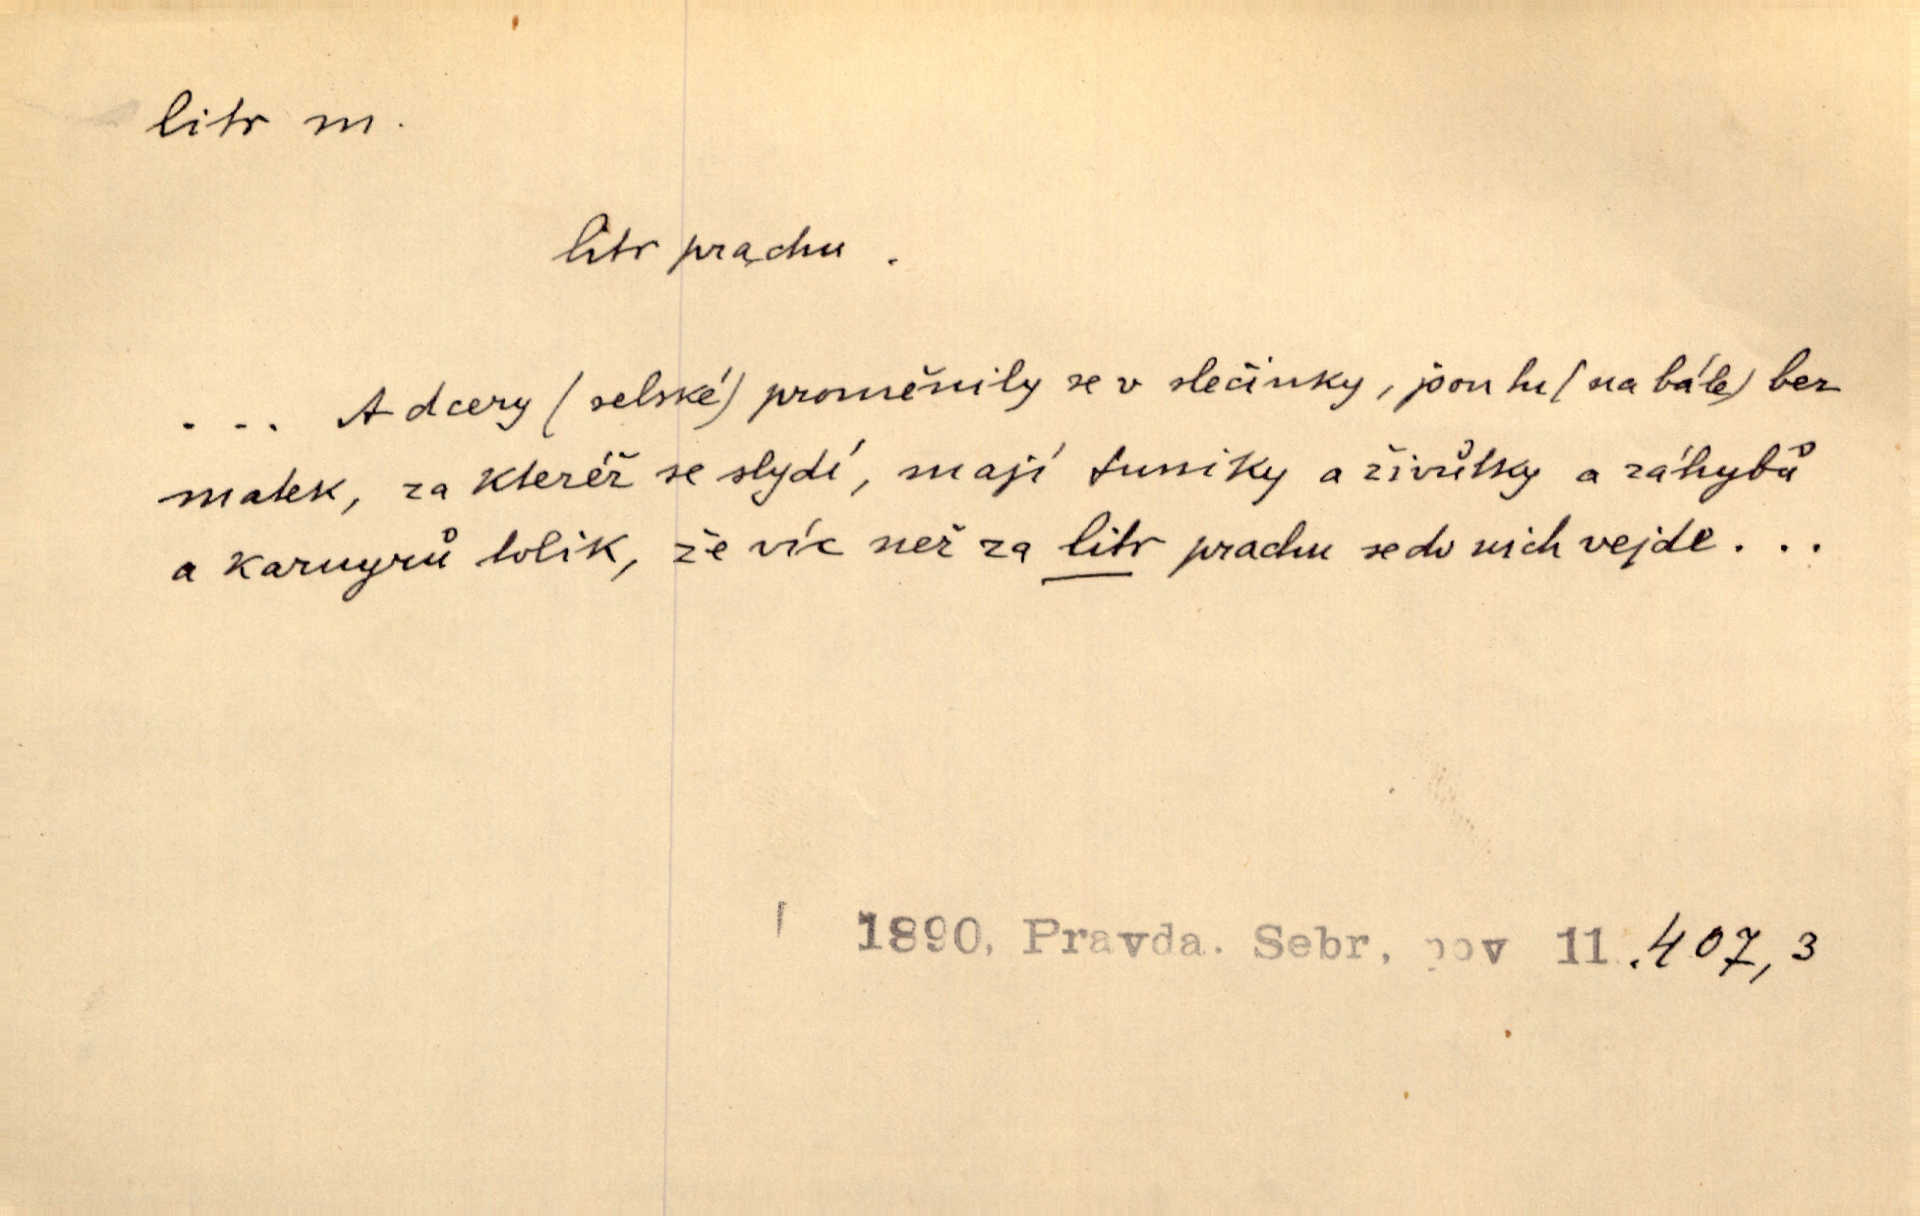 litr m.
litr prachu.
... A dcery (selské) proměnily se v slečinky, jsou tu (na bále) bez
matek, za kteréž se stydí, mají tuniky a živůtky a záhybů
a karnyrů tolik, že víc než za litr prachu se do nich vejde...
1890, Pravda. Sebr. pov 11.407,3